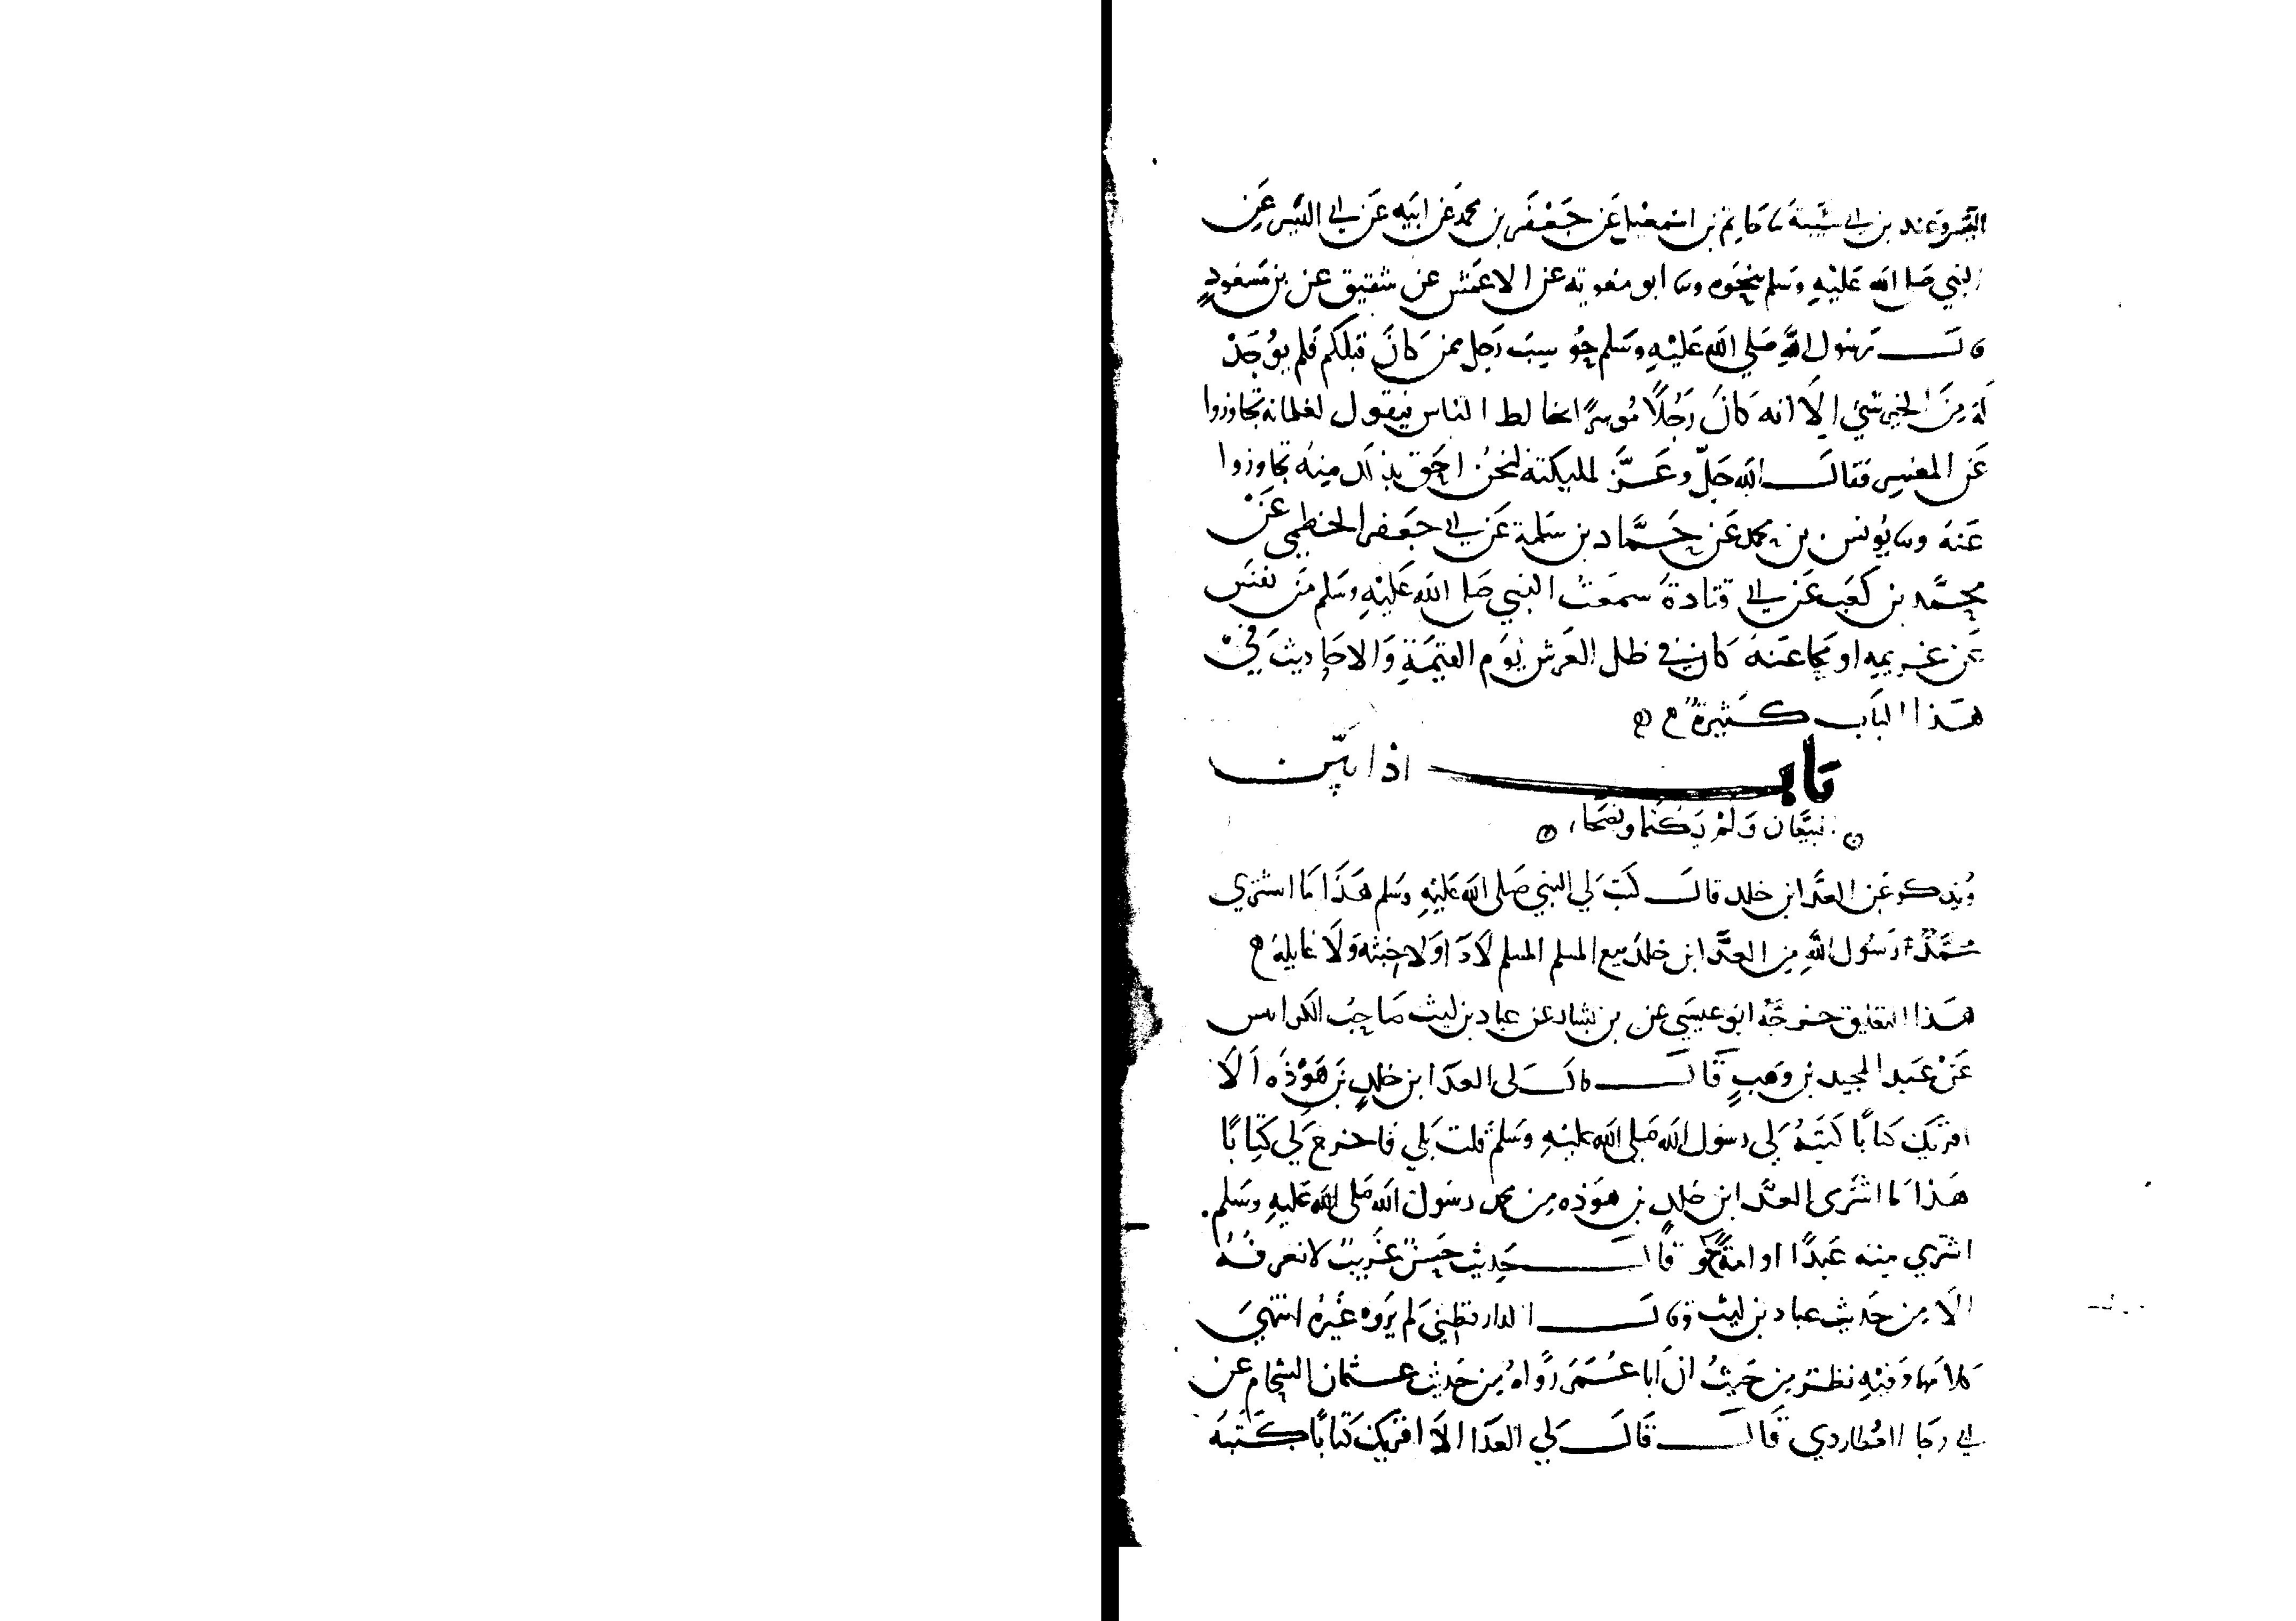 اليسر وعند بن ابي شيبة ثنا حاتم بن اسمعيل عن جعفر بن محمد عن ابيه عن ابي اليسر عن
النبي صلى الله عليه وسلم بنحوه وثنا ابو معوية عن الاعمش عن شقيق عن بن مسعود
قال رسول الله صلي الله عليه وسلم حوسب رجل ممن كان قبلكم فلم يوجد
له من الخير شي الا انه كان رجلا موسرا يخالط الناس فيقول لغلمانه تجاوزوا
عن المعسر فقال الله جل وعز لمليكته لنحن احق بذلك منه تجاوزوا
عنه وثنا يونس بن محمد عن حماد بن سلمة عن ابي جعفر الخطمي عن
محمد بن كعب عن ابي قتادة سمعت النبي صلى الله عليه وسلم من نفس
عن غريمه او محا عنه كان في ظل العرش يوم القيمة والاحاديث في
هذا الباب كثيرة
باب اذا بين
البيعان ولم يكتما ونصحا
ويذكر عن العدا ابن خلد قال كتب لي النبي صلى الله عليه وسلم هذا ما اشتري
محمد رسول الله من العدا ابن خلد بيع المسلم المسلم لا دا ولا خبثه ولا غايله
هذا التعليق خرجه ابو عيسي عن بن بشار عن عباد بن ليث صاحب الكرابيس
عن عبد المجيد بن وهب قال قال لى العدا ابن خلد بن هوذه الا
اقريك كتابا كتبه لي رسول الله صلى الله عليه وسلم قلت بلي فاخرج لي كتابا
هذا ما اشترى العدا ابن خلد بن هوذه من محمد رسول الله صلى الله عليه وسلم
اشتري منه عبدا او امة قال حديث حسن غريب لا نعرفه
الا من حديث عباد بن ليث وقال الدارقطني لم يروه غيره انتهي
كلامهما وفيه نظر من حيث ان ابا عمر رواه من حديث عثمان الشحام عن
ابي رجا العطاردي قال قال لي العدا الا اقريك كتابا كتبه